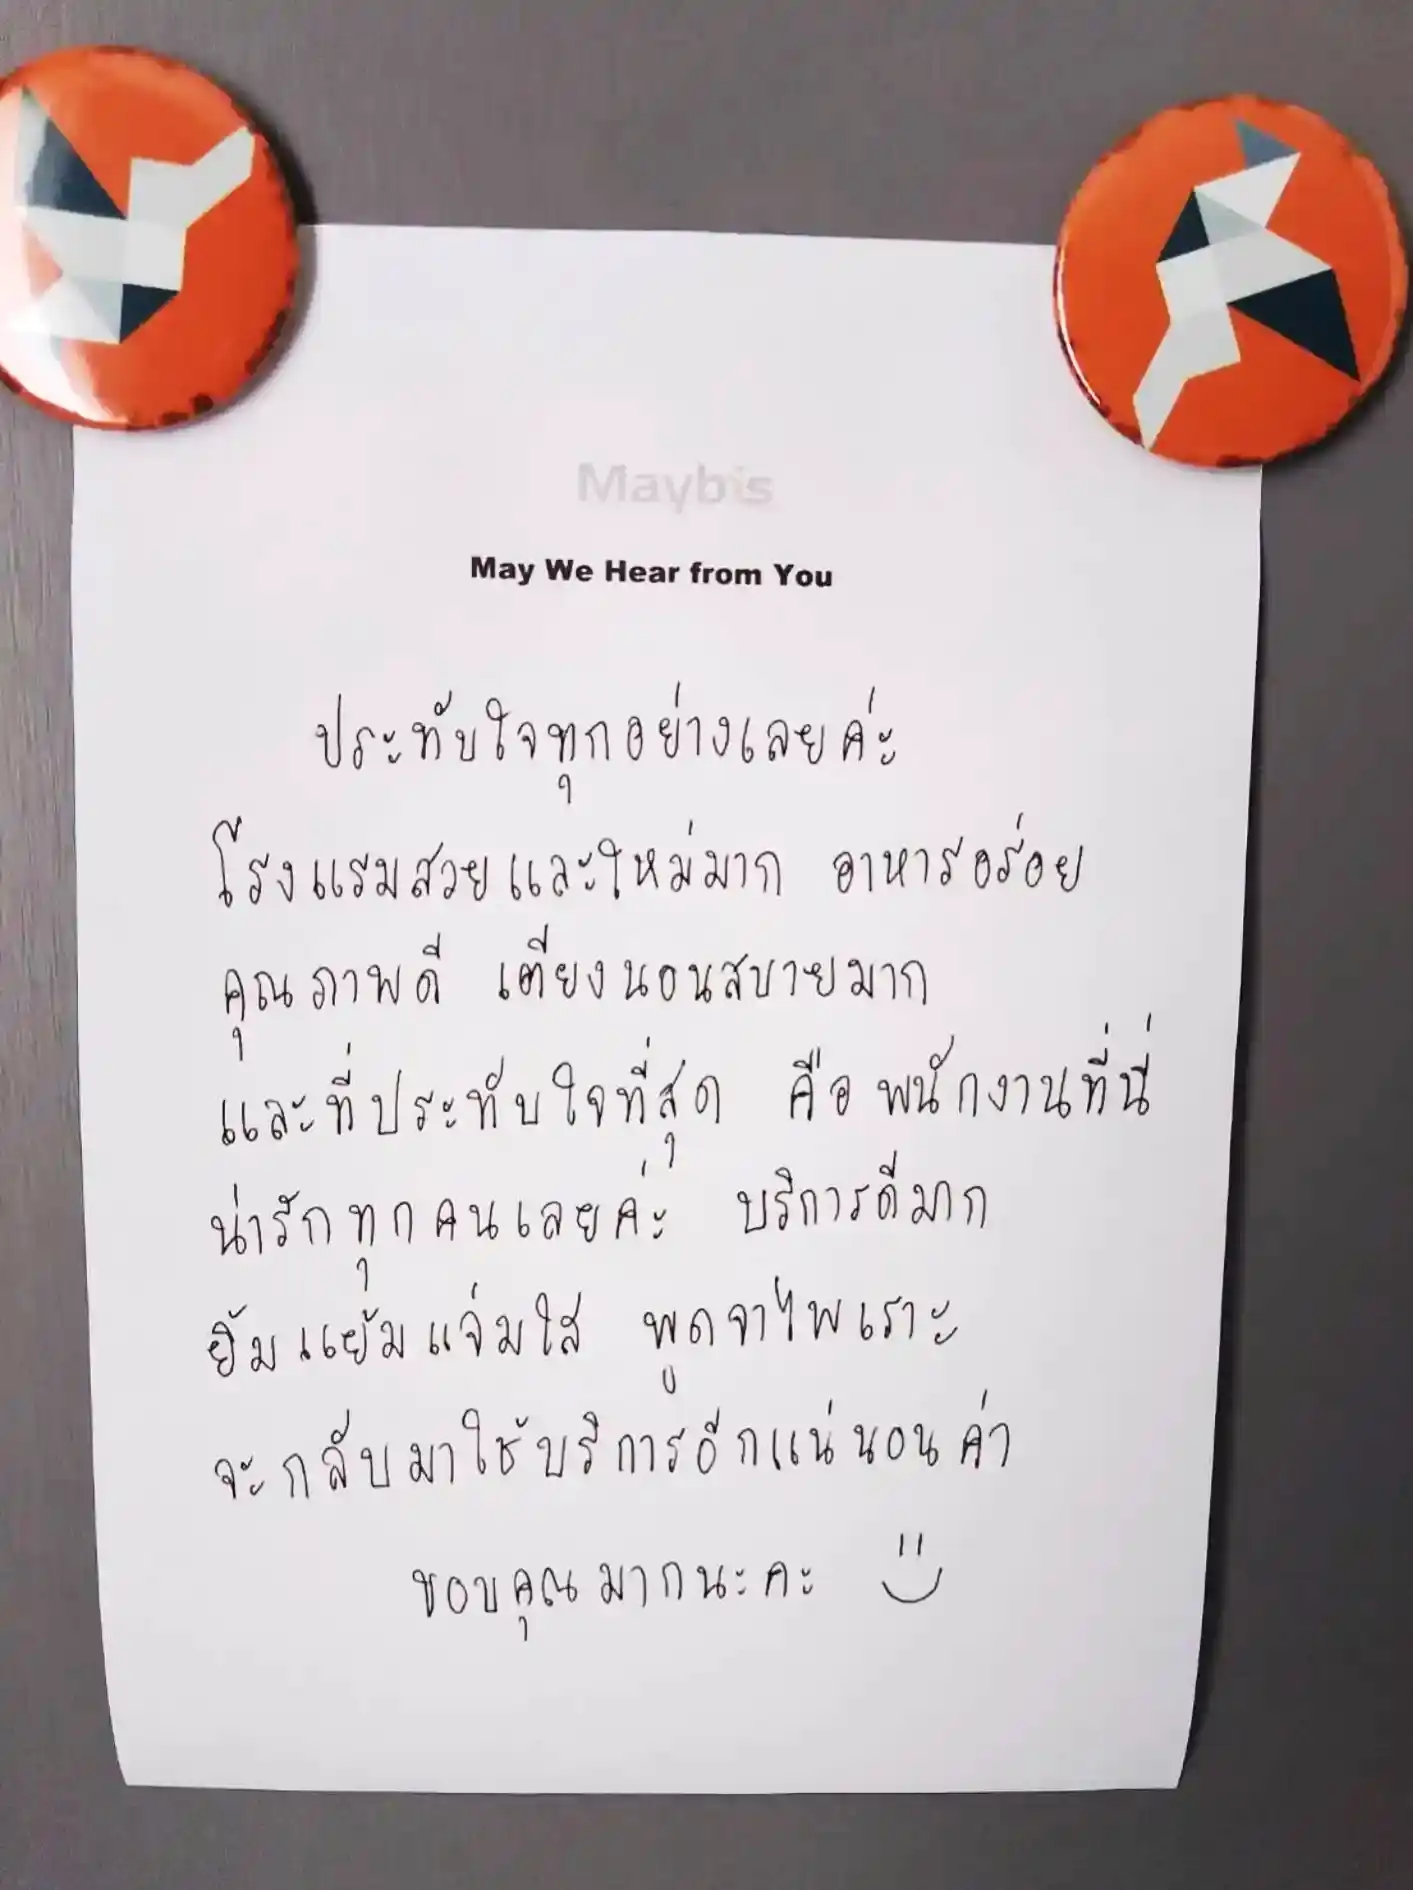 Maybis
May We Hear from You
ประทับใจทุกอย่างเลยค่ะ
โรงแรมสวยและใหม่มาก อาหารอร่อย
คุณภาพดี เตียงนอนสบายมาก
และที่ประทับใจที่สุด คือ พนักงานที่นี่
น่ารักทุกคนเลยค่ะ บริการดีมาก
ยิ้มแย้มแจ่มใส พูดจาไพเราะ
จะกลับมาใช้บริการอีกแน่นอนค่า
ขอบคุณมากนะคะ